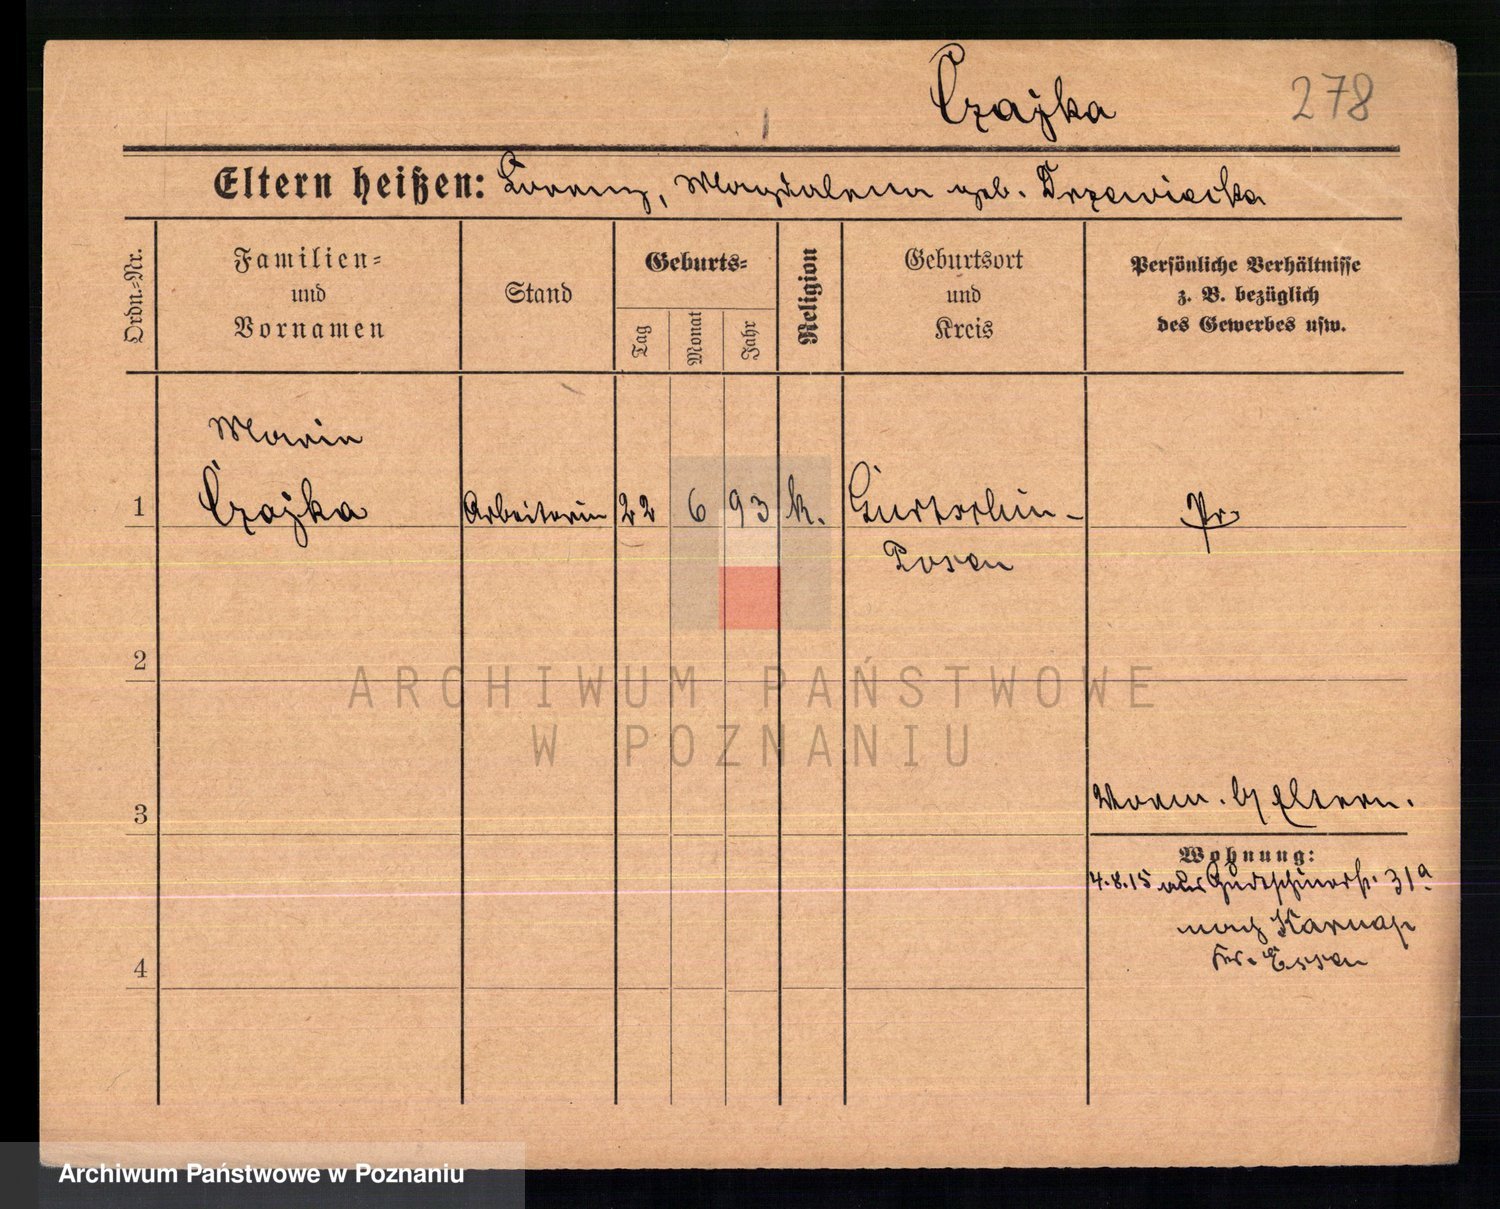 Czajka 278
Eltern heißen: Lorenz, Magdalena geb. Drzewiecka
Ordn.-Nr.
Familien-
und
Vornamen
Stand
Geburts-
Tag
Monat
Jahr
Religion
Geburtsort
und
Kreis
Persönliche Verhältnisse
z. B. bezüglich
des Gewerbes usw.
Maria
1 Czajka Arbeiterin 22 6 93 k. Gurtschin- Pr.
Posen
2
ARCHIWUM PAŃSTWOWE
W POZNANIU
Vorm. b/ Eltern.
3
Wohnung:
4.8.15 aus Gurtschinerstr. 31a
nach Karnap
Kr. Essen
4
Archiwum Państwowe w Poznaniu